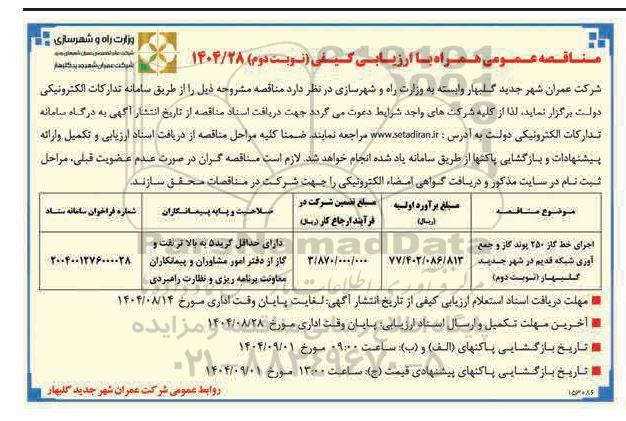 وزارت راه و شهرسازی
شرکت عمران شهر جدید گلبهار
مناقصه عمومی همراه با ارزیابی کیفی (نوبت دوم) ۱۴۰۴/۲۸
شرکت عمران شهر جدید گلبهار وابسته به وزارت راه و شهرسازی در نظر دارد مناقصه مشروحه ذیل را از طریق سامانه تدارکات الکترونیکی
دولت برگزار نماید، لذا از کلیه شرکت های واجد شرایط دعوت می گردد جهت دریافت اسناد مناقصه از تاریخ انتشار آگهی به درگاه سامانه
تدارکات الکترونیکی دولت به آدرس : www.setadiran.ir مراجعه نمایند. ضمنا کلیه مراحل مناقصه از دریافت اسناد ارزیابی و تکمیل وارائه
پیشنهادات و بازگشایی پاکتها از طریق سامانه یاد شده انجام خواهد شد. لازم است مناقصه گران در صورت عدم عضویت قبلی، مراحل
ثبت نام در سایت مذکور و دریافت گواهی امضاء الکترونیکی را جهت شرکت در مناقصات محقق سازند.
موضوع مناقصه
مبلغ برآورد اولیه (ریال)
مبلغ تضمین شرکت در فرآیند ارجاع کار (ریال)
صلاحیت و پایه پیمانکاران
شماره فراخوان سامانه ستاد
اجرای خط گاز ۲۵۰ پوند گاز و جمع
آوری شبکه قدیم در شهر جدید
گلبهار (نوبت دوم)
۷۷/۴۰۲/۰۸۶/۸۱۳
۳/۸۷۰/۰۰۰/۰۰۰
دارای حداقل گرید۵ به بالا در نفت و
گاز از دفتر امور مشاوران و پیمانکاران
معاونت برنامه ریزی و نظارت راهبردی
۲۰۰۴۰۰۱۲۷۶۰۰۰۰۲۸
مهلت دریافت اسناد استعلام ارزیابی کیفی از تاریخ انتشار آگهی: لغایت پایان وقت اداری مورخ ۱۴۰۴/۰۸/۱۴
آخرین مهلت تکمیل و ارسال اسناد ارزیابی: پایان وقت اداری مورخ ۱۴۰۴/۰۸/۲۸
تاریخ بازگشایی پاکتهای (الف) و (ب): ساعت ۰۹:۰۰ مورخ ۱۴۰۴/۰۹/۰۱
تاریخ بازگشایی پاکتهای پیشنهادی قیمت (ج): ساعت ۱۳:۰۰ مورخ ۱۴۰۴/۰۹/۰۱
روابط عمومی شرکت عمران شهر جدید گلبهار
۱۵۳۰۸۶